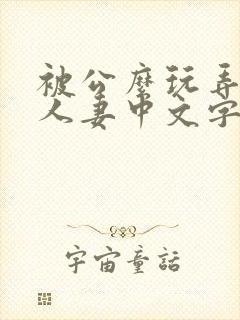 被公麼玩弄
人妻中文字
宇宙童話